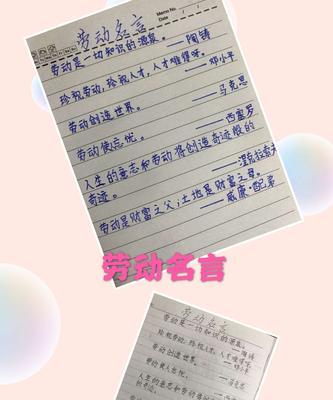 Memo No.
Date
劳动名言
劳动是一切知识的源泉。
——陶铸
珍视劳动，珍视人才，人才难得呀。
——邓小平
劳动创造世界。
——马克思
劳动使忘忧。
——西塞罗
人生的意志和劳动将创造奇迹般的
奇迹。
——涅克拉索夫
劳动是财富之父，土地是财富之母。
——威廉·配弟
劳动名言
劳动名言
劳动是一切知识的源泉。
——陶铸
珍视劳动，珍视人才，人才难得呀。
——邓小平
劳动创造世界。
——马克思
劳动使忘忧。